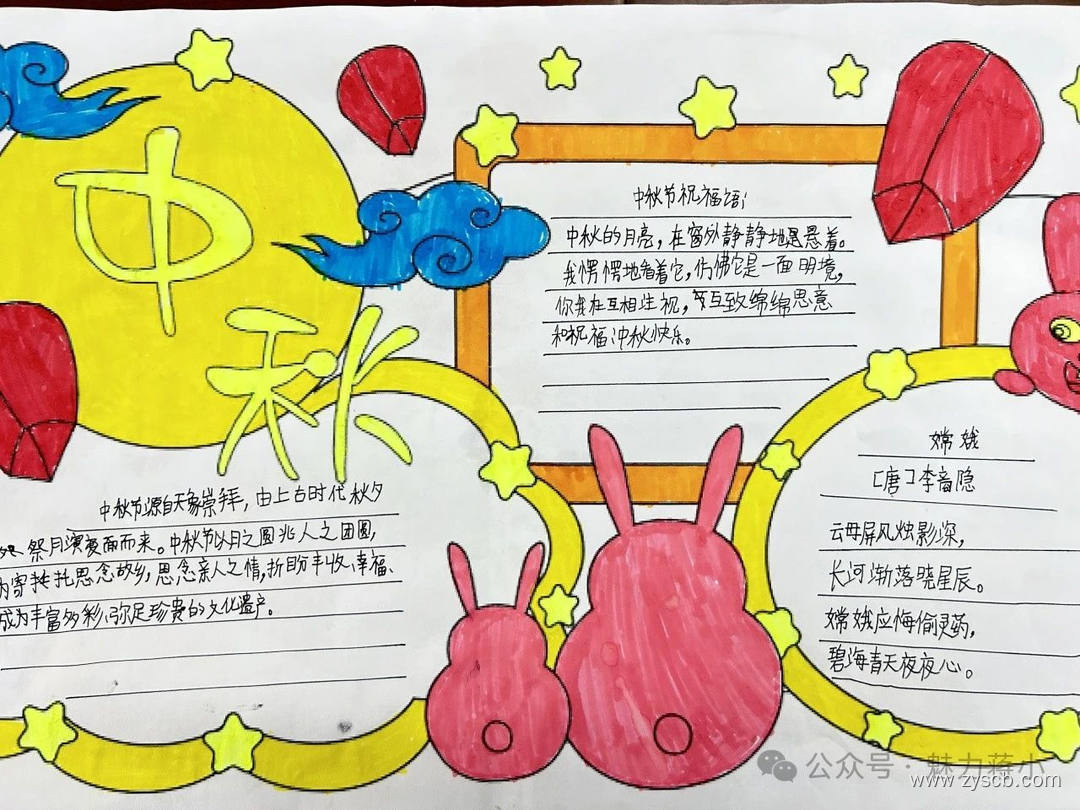 中秋
中秋节祝福语:
中秋的月亮,在窗外静静地悬着。
我愣愣地看着它,仿佛它是一面明境,
你我在互相注视,互致绵绵思意
和祝福冲秋快乐。
中秋节源自天象崇拜,由上古时代秋夕
祭月演变而来。中秋节以月之圆兆人之团圆,
为寄托思念故乡,思念亲人之情,祈盼丰收、幸福、
成为丰富多彩、弥足珍贵的文化遗产。
嫦娥
[唐]李商隐
云母屏风烛影深,
长河渐落晓星辰。
嫦娥应悔偷灵药,
碧海青天夜夜心。
公众号·魅力蒋小
www.zyscb.com